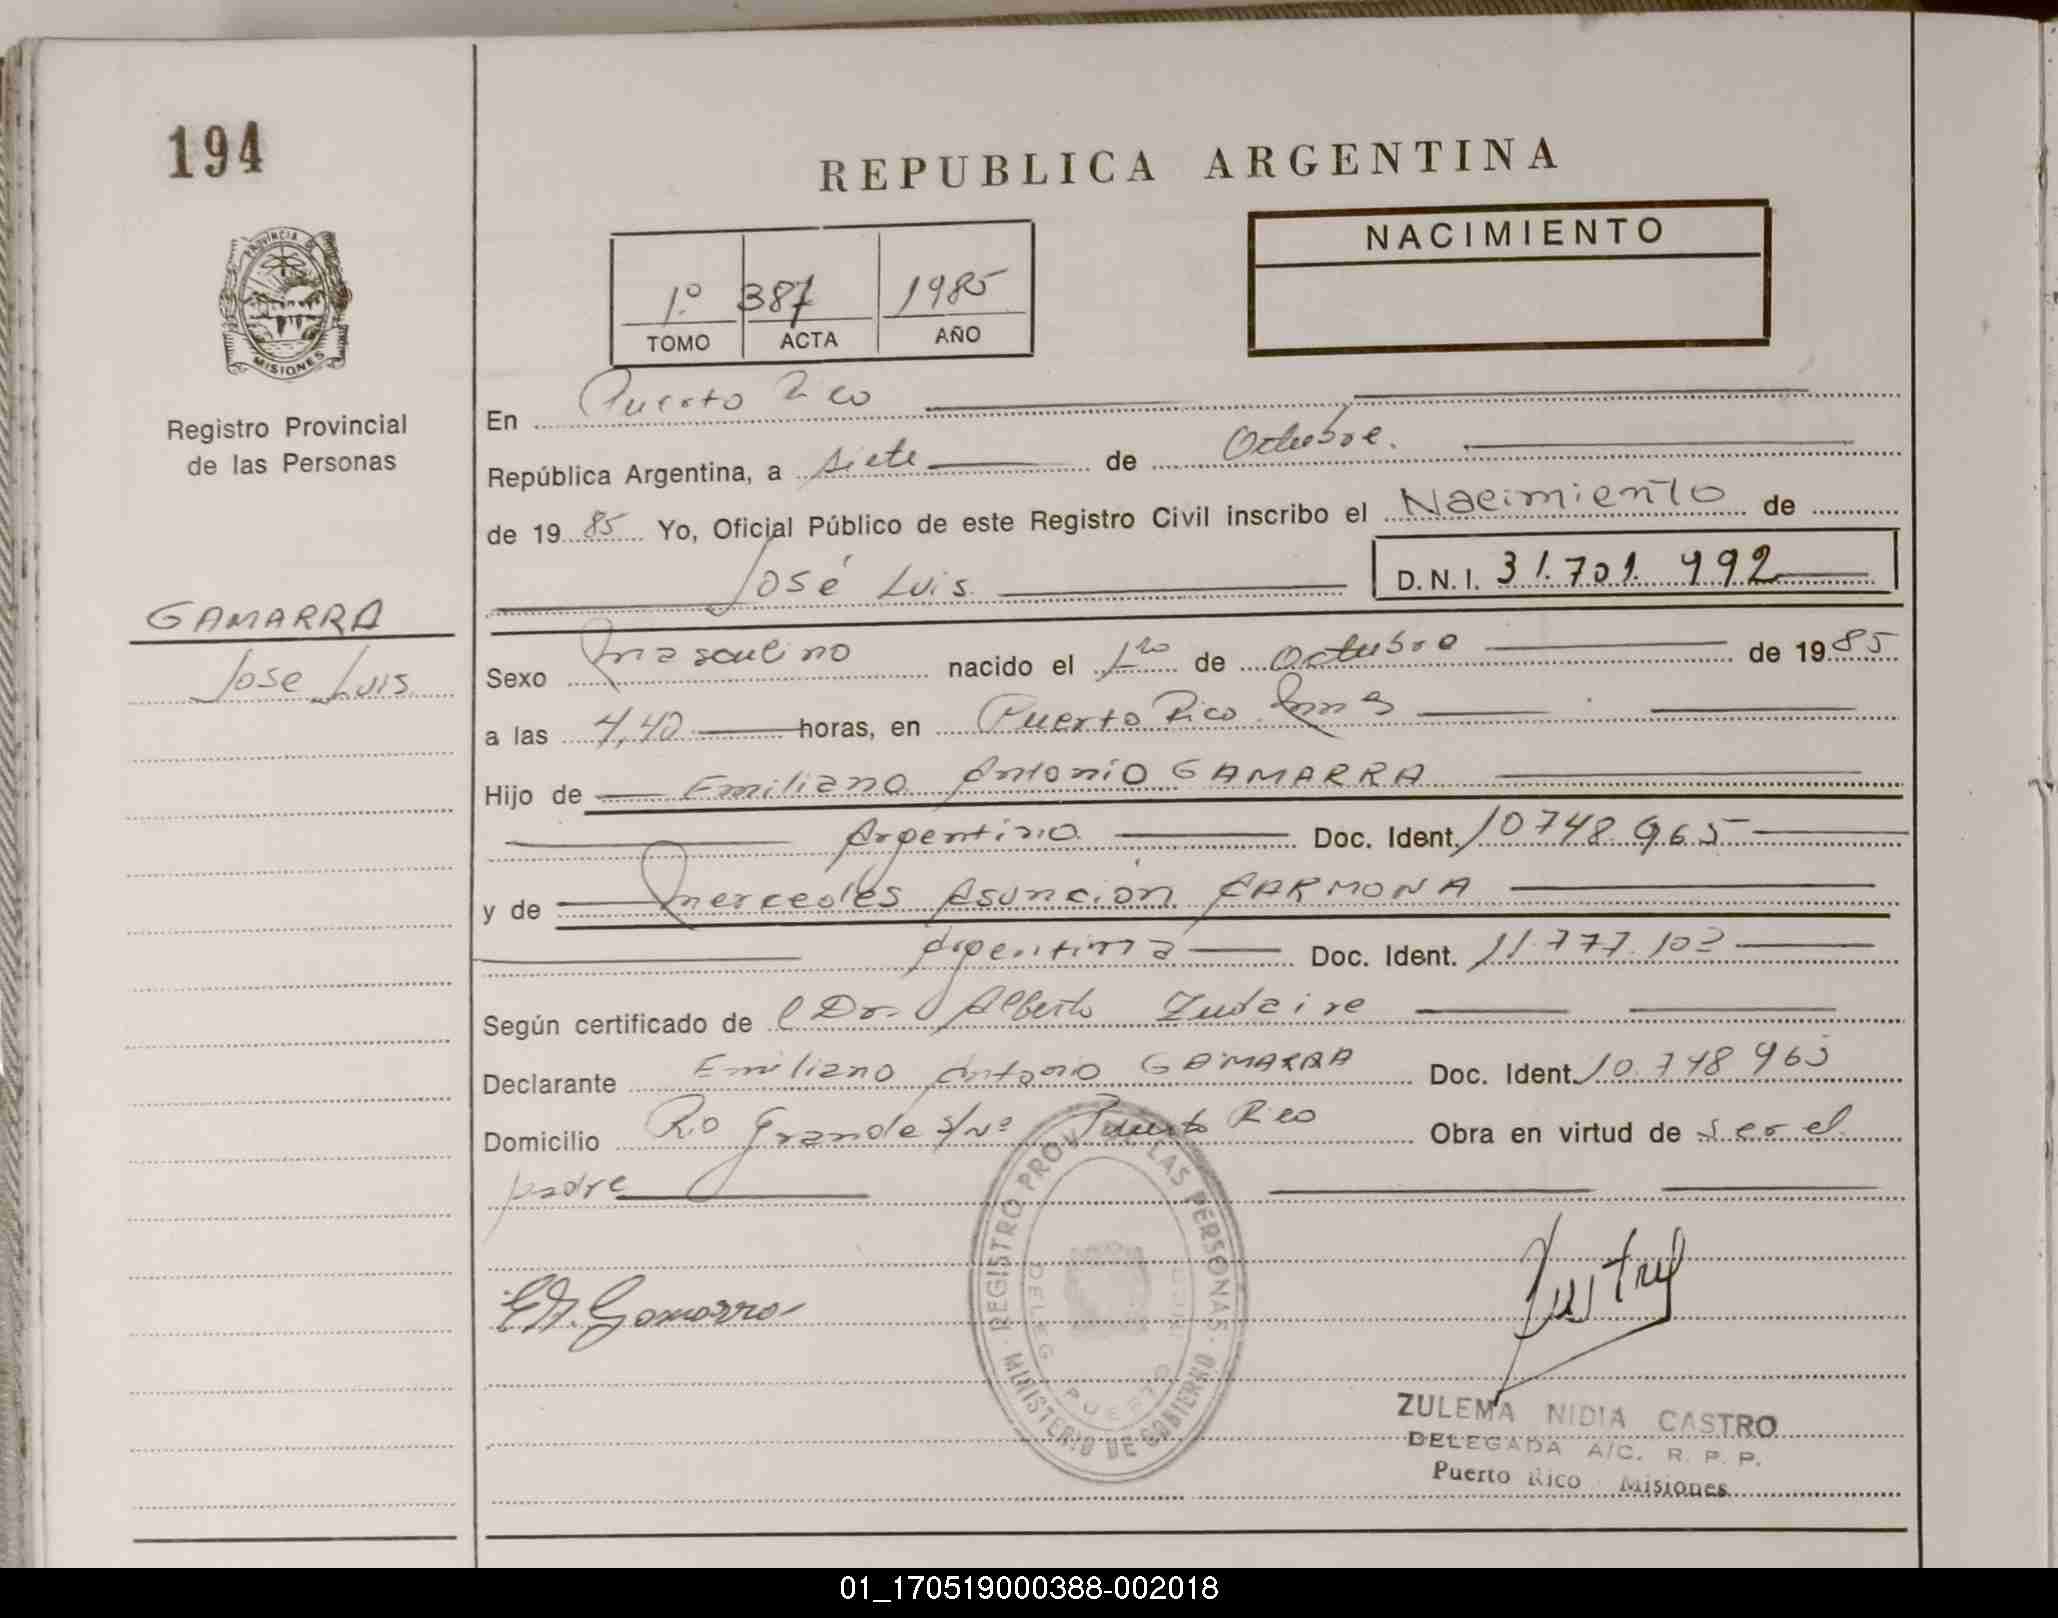 194
REPUBLICA ARGENTINA
PROVINCIA DE MISIONES
NACIMIENTO
1º 387 1985
TOMO ACTA AÑO
Registro Provincial
de las Personas
En Puerto Rico
República Argentina, a siete de Octubre.
de 1985 Yo, Oficial Público de este Registro Civil inscribo el Nacimiento de
José Luis D.N.I. 31.701.992
GAMARRA
Jose Luis
Sexo masculino nacido el 1ro de Octubre de 1985
a las 4,40 horas, en Puerto Rico Mnes
Hijo de Emiliano Antonio GAMARRA
Argentino Doc. Ident. 10.748.965
y de Mercedes Asunción CARMONA
Argentina Doc. Ident. 11.777.102
Según certificado de l Dr. Alberto Zudaire
Declarante Emiliano Antonio GAMARRA Doc. Ident. 10.748.965
Domicilio Rio Grande s/nº Puerto Rico Obra en virtud de ser el
padre
REGISTRO PROV. LAS PERSONAS
DELEG PUERTO
MINISTERIO DE GOBIERNO
E.A. Gamarra
ZULEMA NIDIA CASTRO
DELEGADA A/C. R. P. P.
Puerto Rico Misiones
01_170519000388-002018